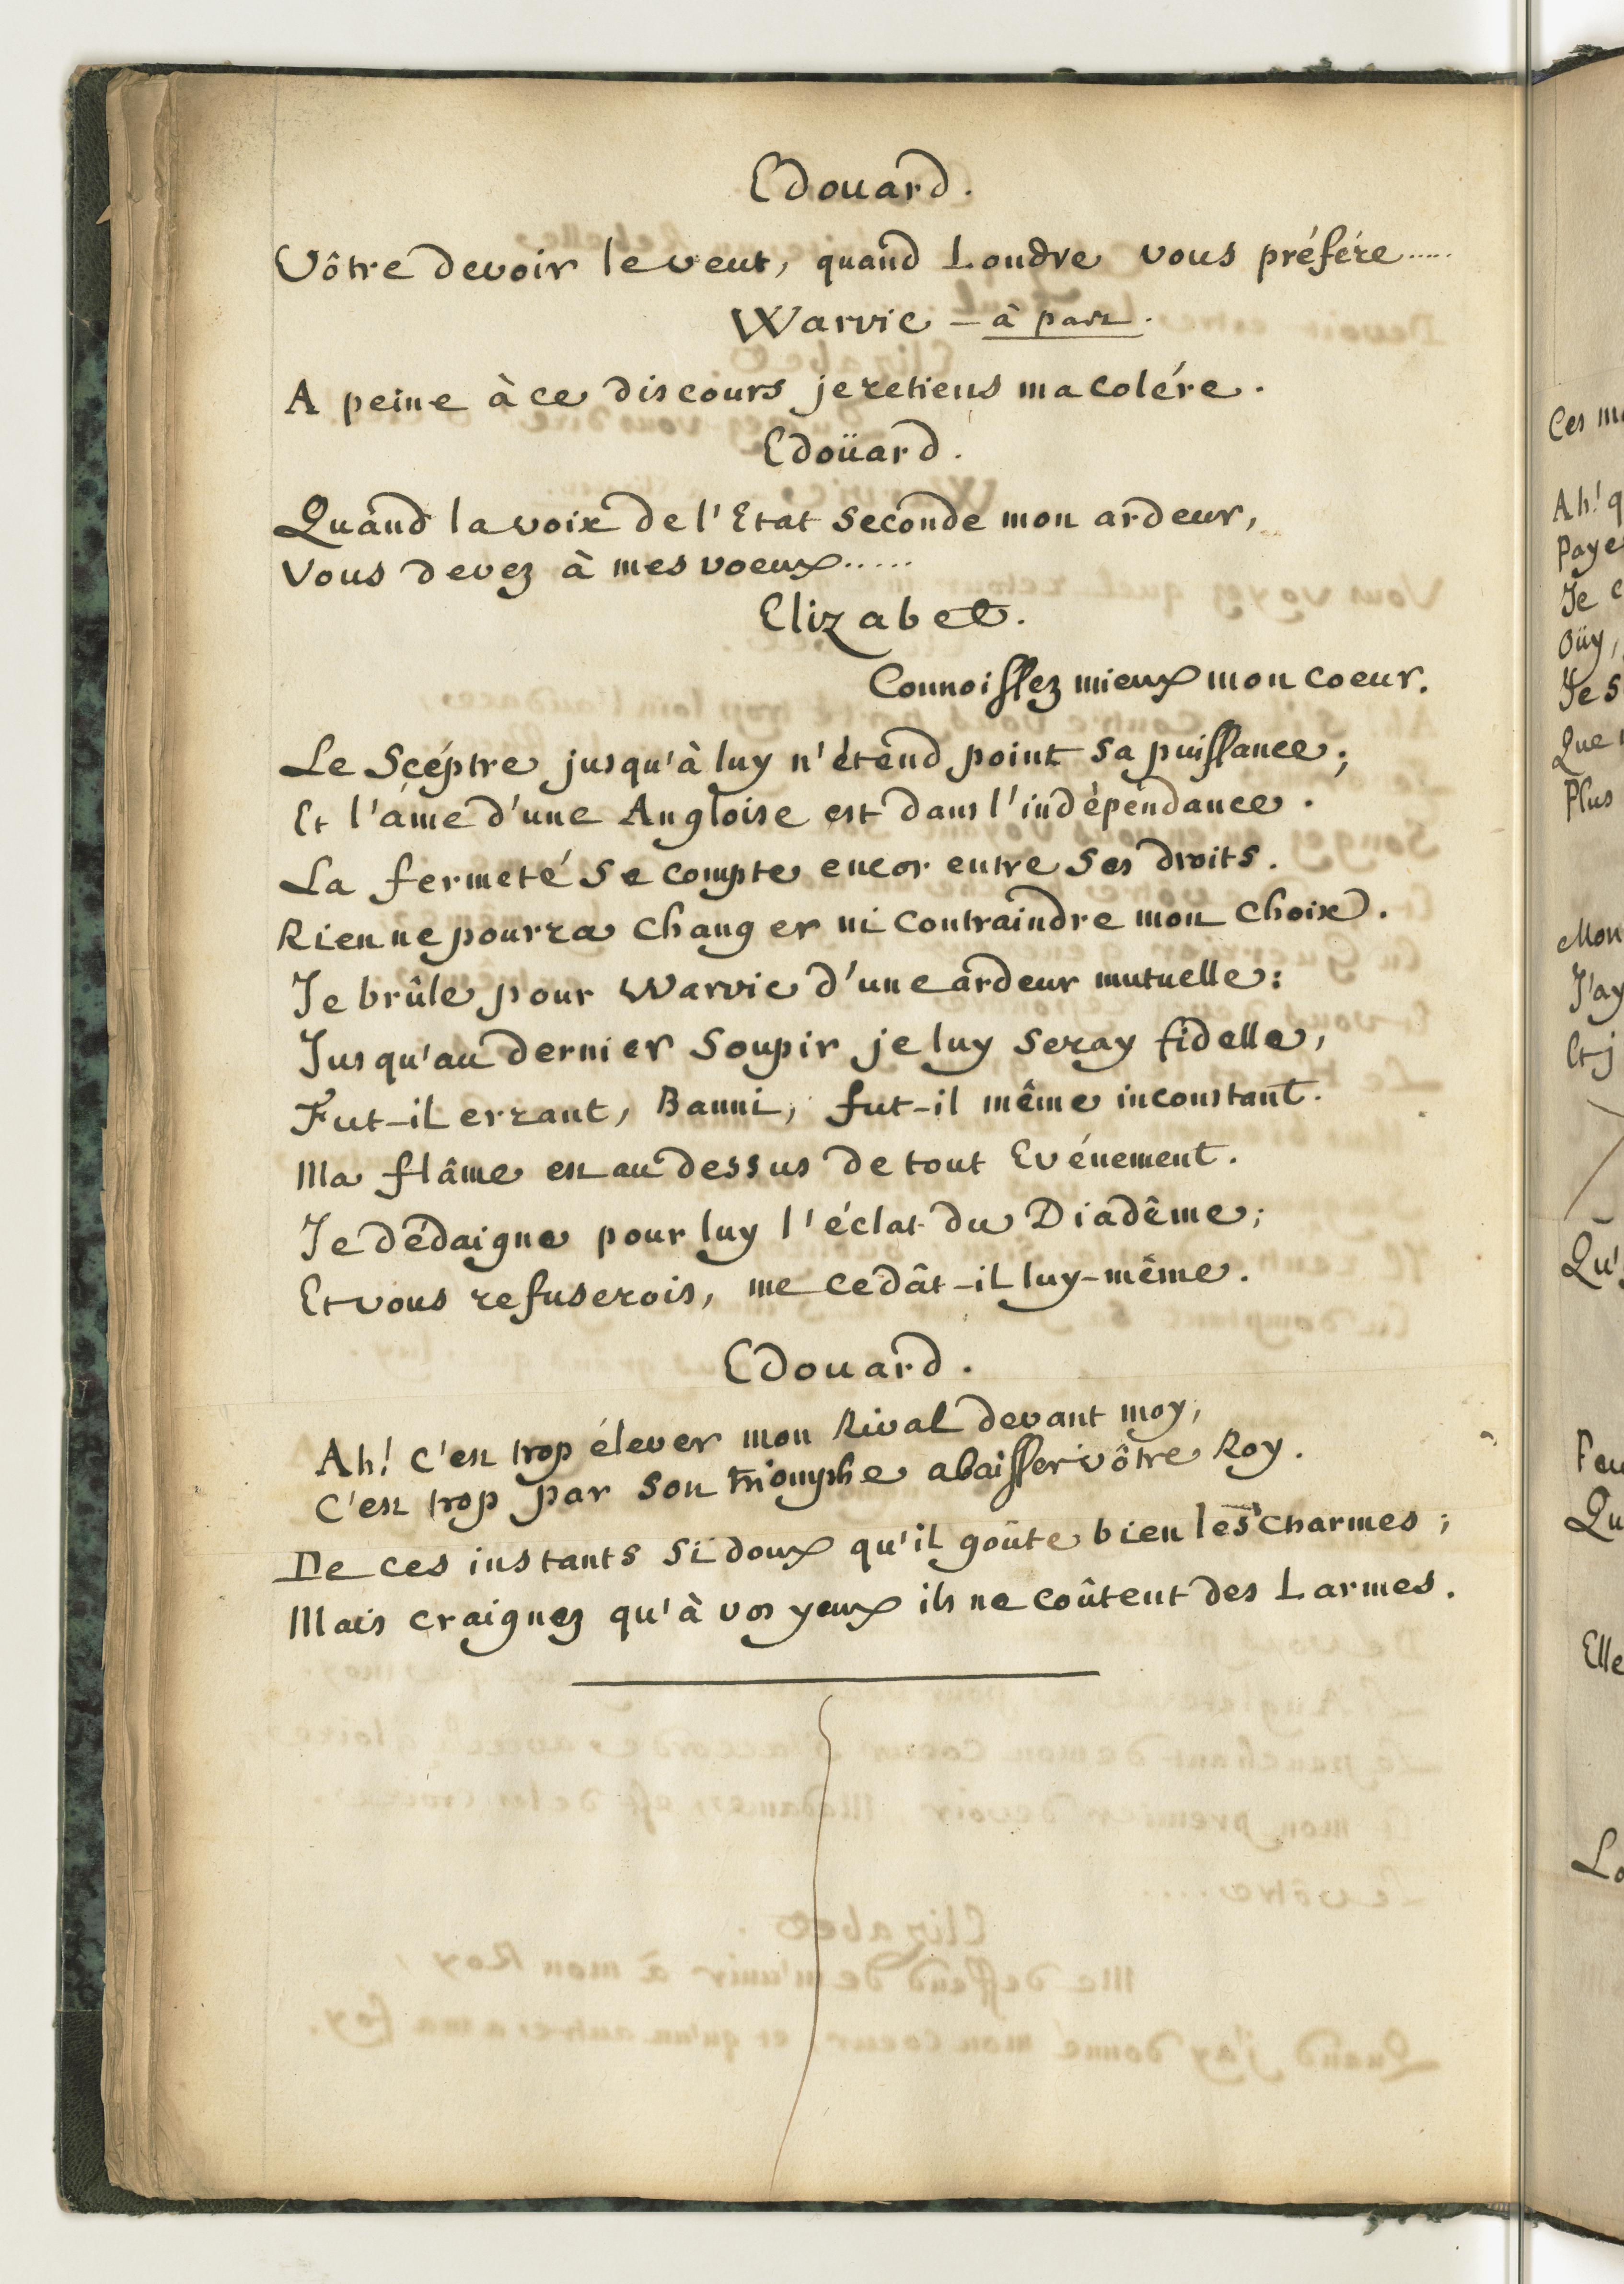 Edouard.
Vôtre devoir le veut, quand Londre vous préfére.....
Warvic – à part.
A peine à ce discours je retiens ma colére.
Edoüard.
Quand la voix de l'Etat seconde mon ardeur,
Vous devez à mes voeux.....
Elizabet.
Connoissez mieux mon coeur.
Le Scéptre jusqu'à luy n'étend point sa puissance;
Et l'áme d'une Angloise est dans l'indépéndance.
La fermeté se compte encor entre ses droits.
Rien ne pourra changer ni contraindre mon choix.
Je brûle pour Warvic d'une ardeur mutuelle:
Jusqu'au dernier soupir je luy seray fidelle,
Fut-il errant, Banni, fut-il même inconstant.
Ma flâme est au dessus de tout Evénement.
Je dédaigne pour luy l'éclat du Diadême;
Et vous refuserois, me cedât-il luy-même.
Edouard.
Ah! c'est trop élever mon Rival devant moy,
C'est trop par son triomphe abaisser vôtre Roy.
De ces instants si doux qu'il goûte bien les charmes;
Mais craignez qu'à vos yeux ils ne coûtent des Larmes.
Ces
Ah!
Je
Oüy,
Je
Que
Plus
Mon
J'ay
Et j
Elle